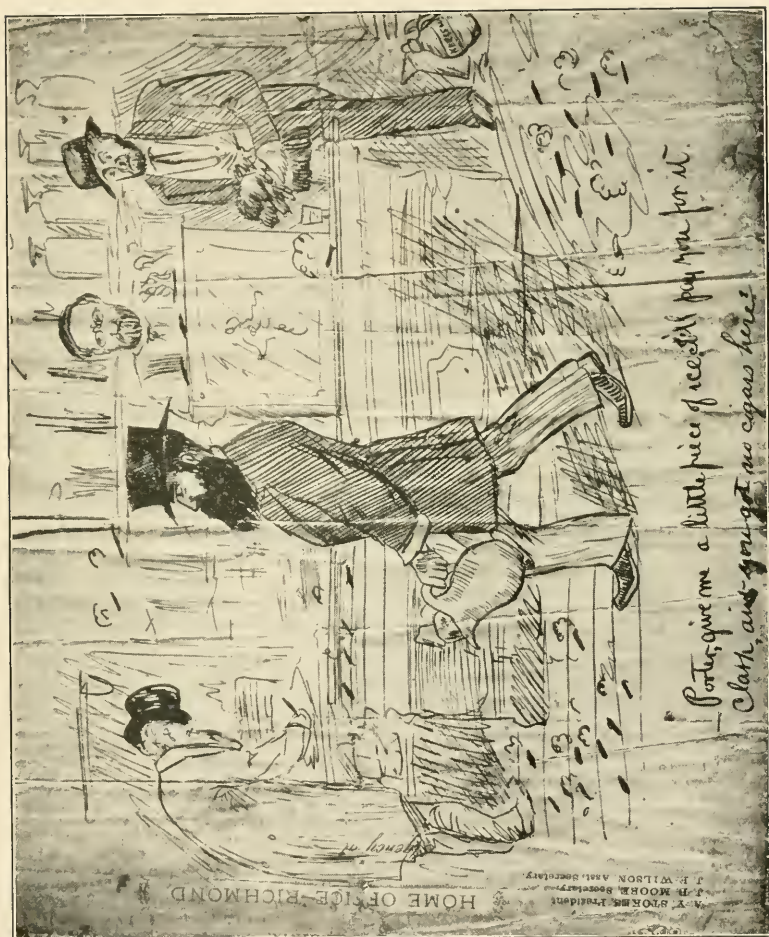 Porter, give me a little piece of ice & I'll pay you for it.
Clark, aint you got no cigars here?
HOME OFFICE, RICHMOND
A. Y. STOKES, President
J. B. MOORE, Secretary
J. F. WILSON Asst. Secretary
gency at